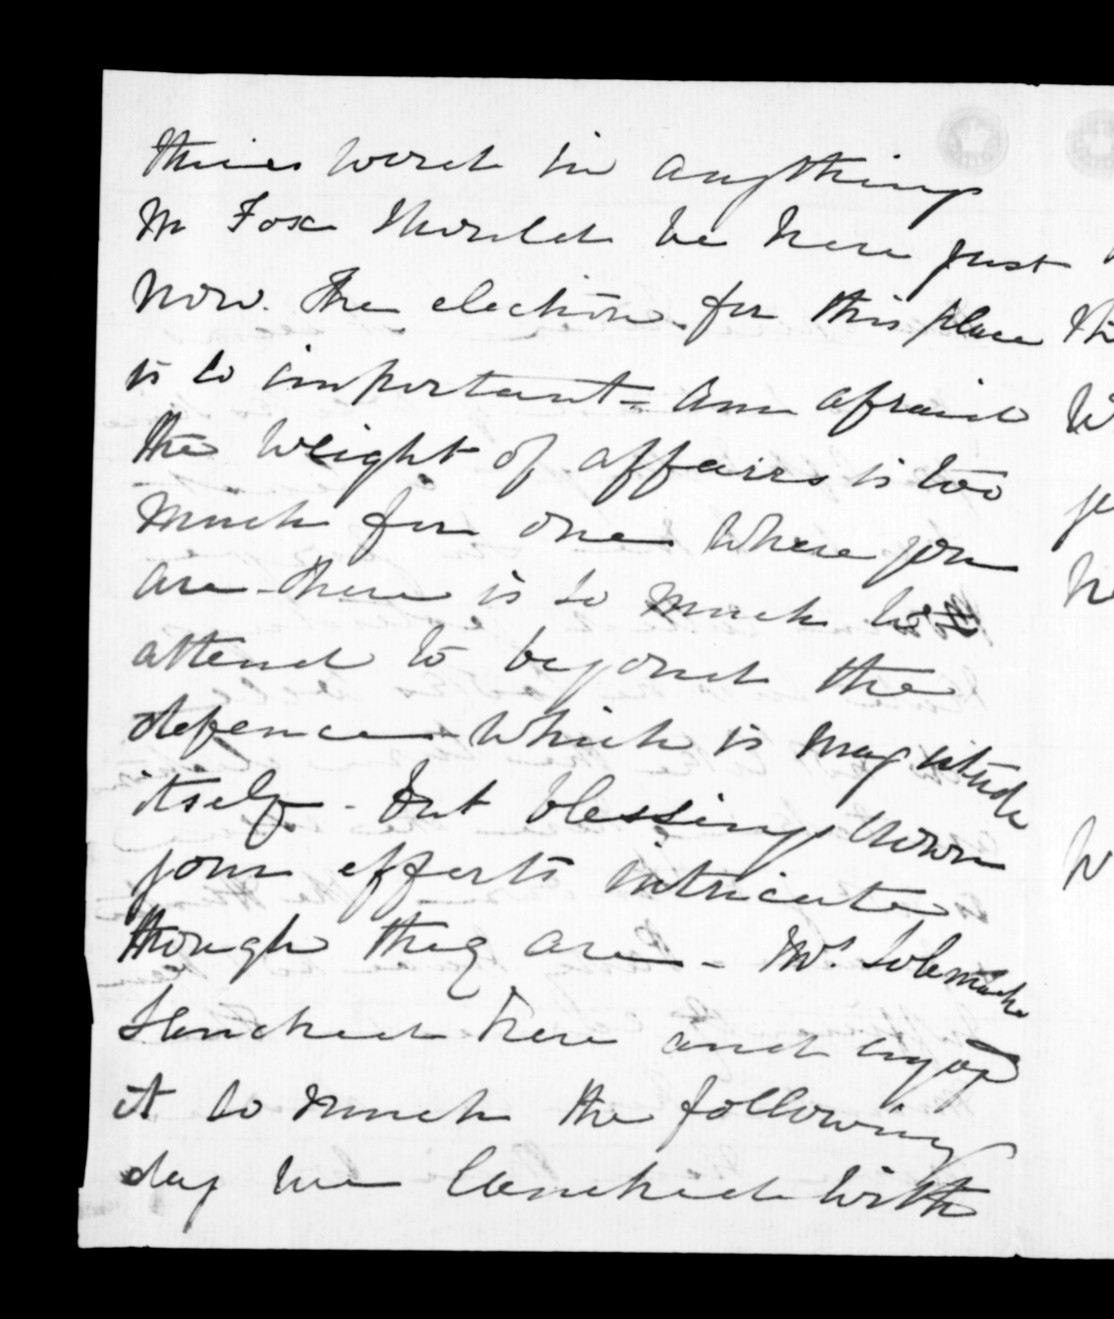 times word in anything
Mr Fox should be here just
now. The elections for this place
is so important - am afraid
the weight of affairs is too
much for one where you
are - there is so much to
attend to beyond the
defence which is magnitude
itself - But blessings crown
your efforts intricate
though they are - Mr
lunched here and enjoyed
it so much the following
day we lunched with